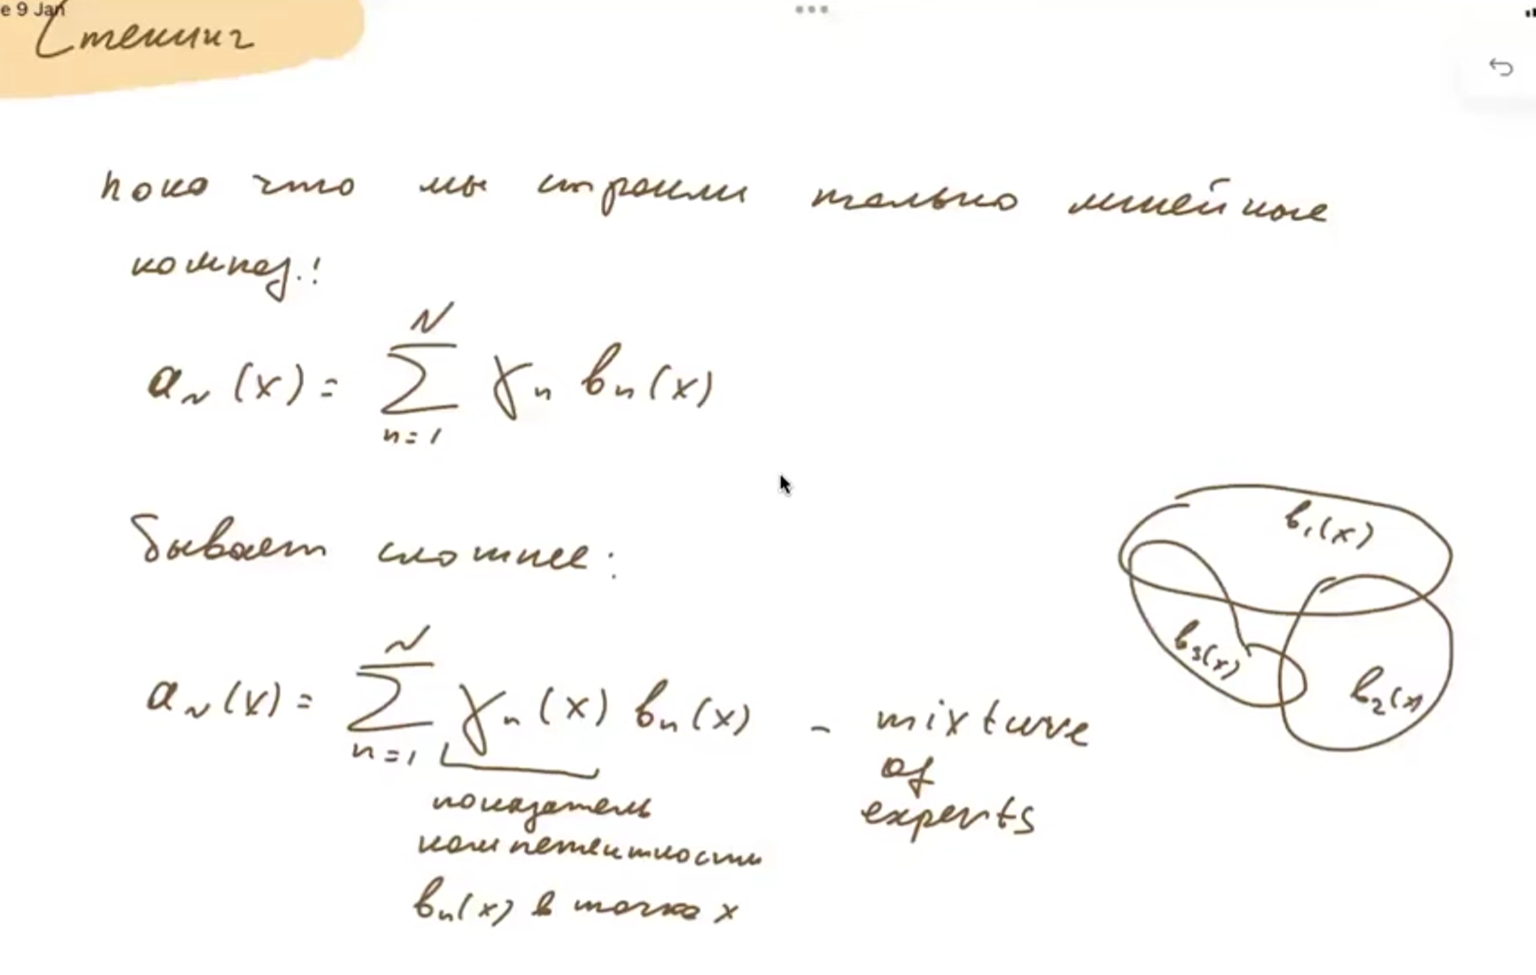 e 9 Jan
Стекинг
пока что мы строили только линейные
композ.!
a_N(x) = \sum_{n=1}^{N} γ_n b_n(x)
бывает сложнее:
a_N(x) = \sum_{n=1}^{N} γ_n(x) b_n(x) - mixture
of
experts
показатель
компетентности
b_n(x) в точке x
b_1(x)
b_3(x)
b_2(x)